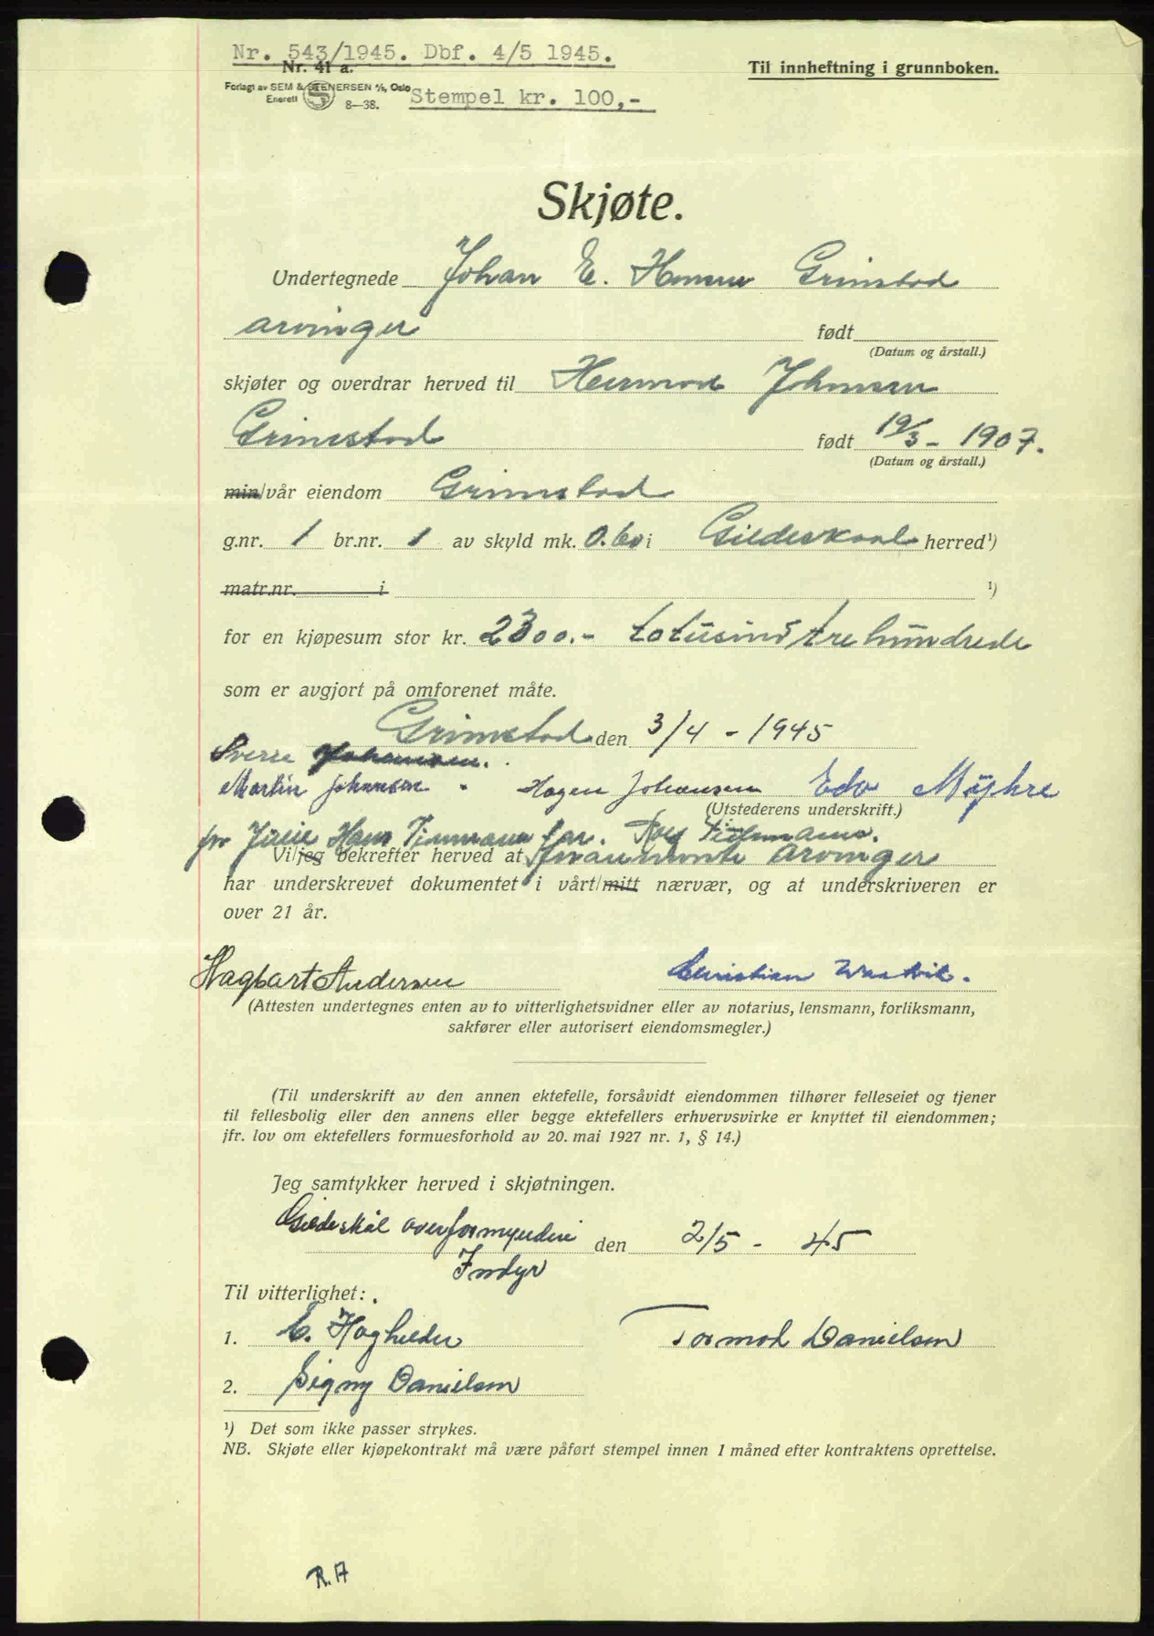 Nr. 543/1945. Dbf. 4/5 1945.
Nr. 41 a.
Til innheftning i grunnboken.
Forlagt av SEM & STENERSEN A/S, Oslo
Enerett S 8—38.
Stempel kr. 100,-
Skjøte.
Undertegnede Johan E. Hansen Grimstad
arvinger født
(Datum og årstall.)
skjøter og overdrar herved til Hermod Johansen
Grimstad født 19/3 - 1907.
(Datum og årstall.)
min/vår eiendom Grimstad
g.nr. 1 br.nr. 1 av skyld mk. 0.60 i Gildeskaal herred ¹)
matr.nr. i ¹)
for en kjøpesum stor kr. 2300.- totusind trehundrede
som er avgjort på omforenet måte.
Grimstad den 3/4 - 1945
Sverre Johansen.
Martin Johansen Hagen Johansen Edv Myhre
(Utstederens underskrift.)
for Julie Hans Tiemmann
Vi/jeg bekrefter herved at arvinger
har underskrevet dokumentet i vårt/mitt nærvær, og at underskriveren er
over 21 år.
Hagbart Andersen Christian
(Attesten undertegnes enten av to vitterlighetsvidner eller av notarius, lensmann, forliksmann,
sakfører eller autorisert eiendomsmegler.)
(Til underskrift av den annen ektefelle, forsåvidt eiendommen tilhører felleseiet og tjener
til fellesbolig eller den annens eller begge ektefellers erhvervsvirke er knyttet til eiendommen;
jfr. lov om ektefellers formuesforhold av 20. mai 1927 nr. 1, § 14.)
Jeg samtykker herved i skjøtningen.
Gildeskål overformynderi den 2/5 - 45
Indyr
Til vitterlighet:
1. E. Hoghelder Tormod Danielsen
2. Signy Danielsen
¹) Det som ikke passer strykes.
NB. Skjøte eller kjøpekontrakt må være påført stempel innen 1 måned efter kontraktens oprettelse.
R.A